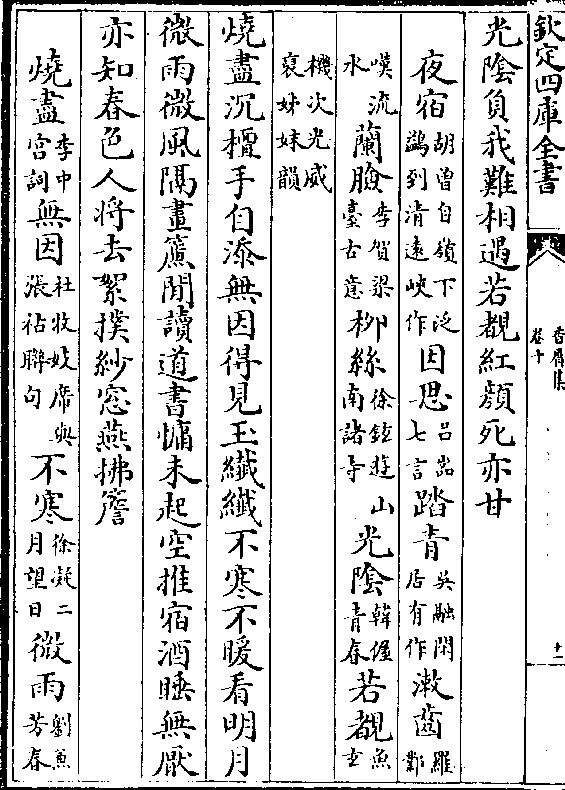 欽定四庫全書
香屑集
卷十
十一
光隂負我難相遇若覩紅顔死亦甘
夜宿胡曽自嶺下泛鷁到清逺峽作因思吕嵓七言踏青吴融閑居有作漱齒羅鄴
嘆流水蘭臉李賀梁臺古意栁絲徐鉉遊山南諸寺光隂韓偓青春若覩魚玄
機次光威裒姊妹韻
燒盡沉檀手自添無因得見玉纎纎不寒不暖看明月
微雨微風隔畫簾閒讀道書慵未起空推宿酒睡無厭
亦知春色人将去絮撲紗窓燕拂簷
燒盡李中宫詞無因杜牧妓席與張祜聯句不寒徐凝二月望日微雨劉兼芳春